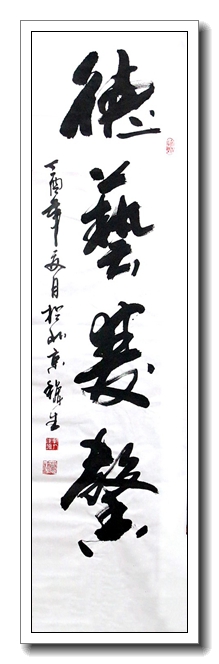 德藝雙馨
丁酉年夏月於北京